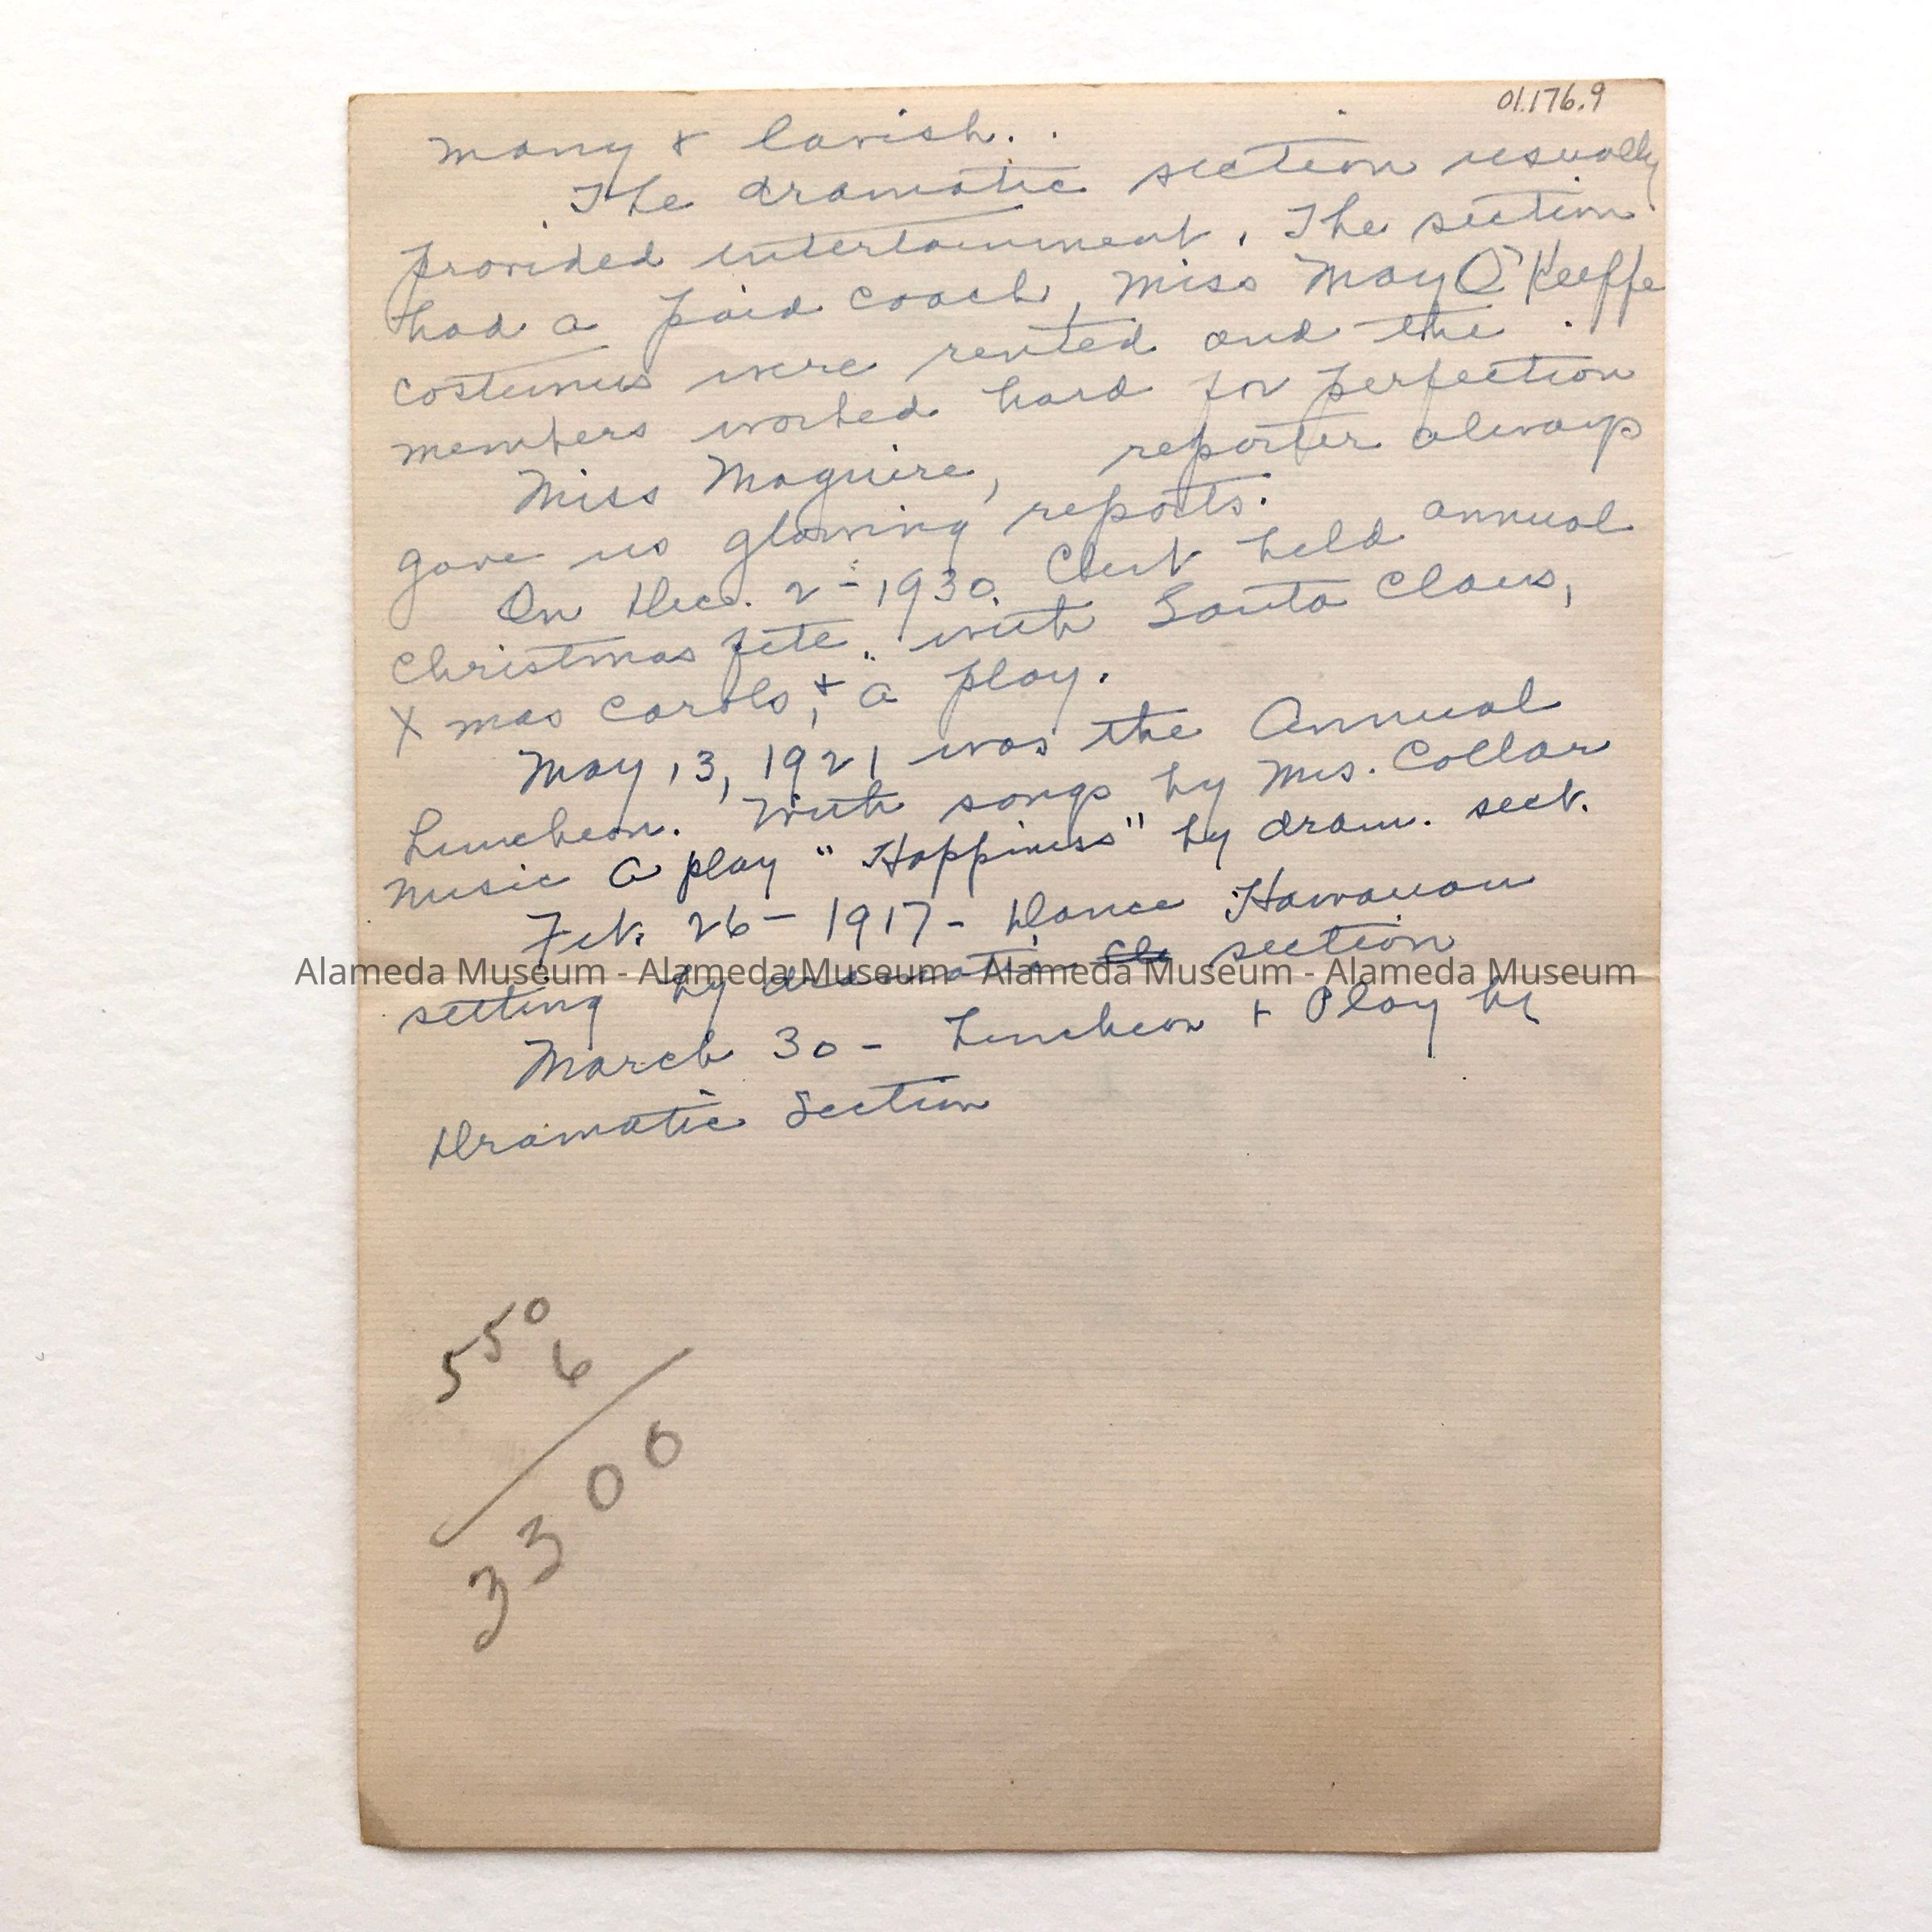 01.176.9
many & lavish.
The dramatic section usually
provided entertainment. The section
had a paid coach, Miss May O'Keeffe
costumes were rented and the
members worked hard for perfection
Miss Maguire, reporter always
gave us glowing reports.
On Dec. 2 - 1930. Club held annual
Christmas fete. with Santa Claus,
X mas carols, & a play.
May 13, 1921 was the Annual
Luncheon. With songs by Mrs. Collar
Music A play "Happiness" by dram. sect.
Feb. 26 - 1917 - Dance Hawaiian
setting by dramatic section
Alameda Museum - Alameda Museum - Alameda Museum - Alameda Museum
March 30 - Luncheon + Play by
Dramatic Section
550
6
3300